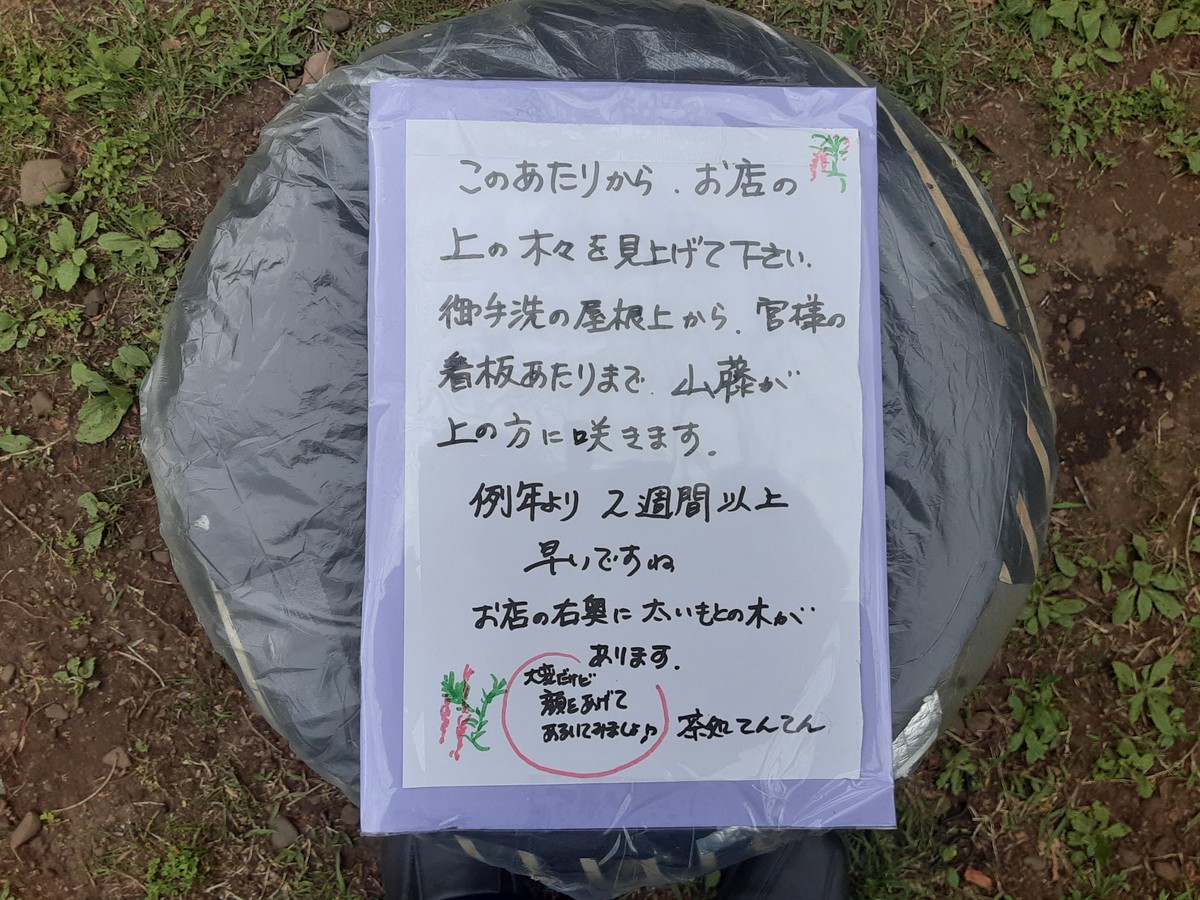 このあたりから、お店の
上の木々を見上げて下さい、
御手洗の屋根上から、宮様の
看板あたりまで、山藤が
上の方に咲きます。
例年より 2週間以上
早いですね
お店の右奥に太いもとの木が
あります。
大変だけど
顔をあげて
あるいてみましょ♪
茶処てんてん